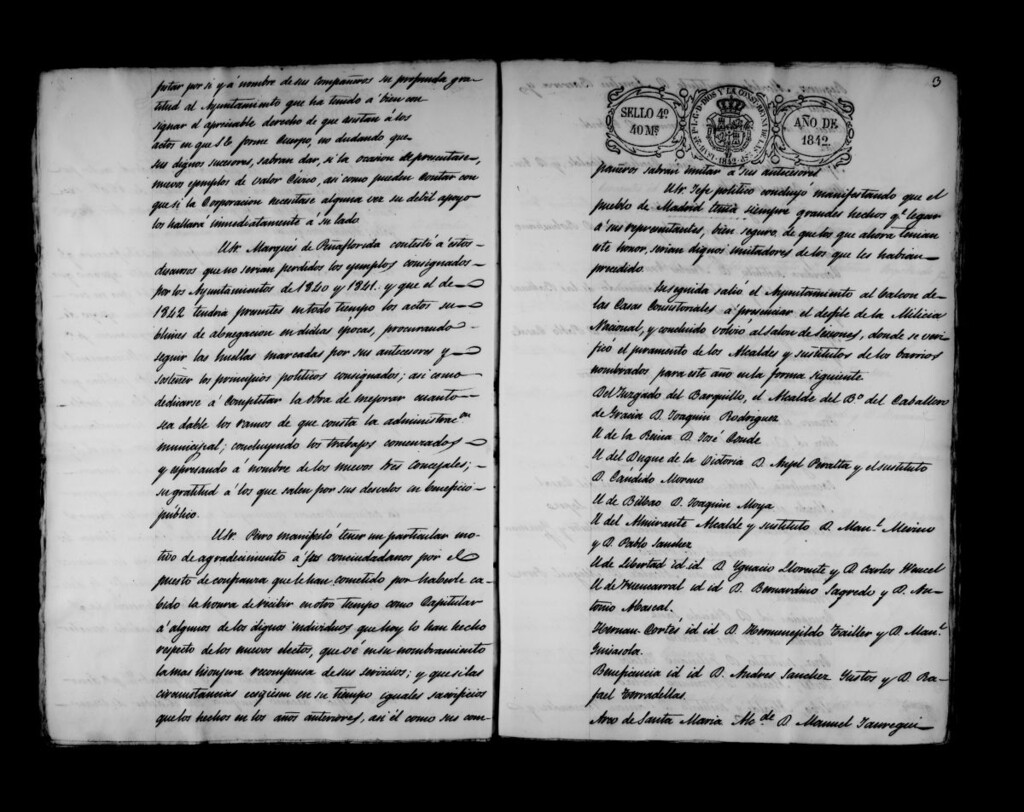 festar por si y á nombre de sus compañeros su profunda gra-
titud al Ayuntamiento que ha tenido á bien con
signar el apreciable derecho de que asistan á los
actos en que S.E. forme Cuerpo, no dudando que
sus dignos sucesores, sabran dar, si la ocasion de presentase,
nuevos ejemplos de valor Civico, asi como pueden Contar con
que si la Corporacion necesitase alguna vez su debil apoyo
los hallará inmediatamente á su lado
El Sr. Marqués de Peñaflorida contestó á estos
discursos que no serian perdidos los ejemplos consignados
por los Ayuntamientos de 1840 y 1841. y que el de
1842 tendria presentes en todo tiempo los actos su-
blimes de abnegacion en dichas épocas, procurando
seguir las huellas marcadas por sus antecesores y
sostener los principios politicos consignados; asi como
dedicarse á Completar la obra de mejorar cuanto
sea dable los ramos de que consta la administracⁿ
municipal; concluyendo los trabajos comenzados
y espresando á nombre de los nuevos tres concejales;
su gratitud á los que salen por sus desvelos en beneficio
público.
El Sr. Puro manifestó tener un particular mo-
tivo de agradecimiento á sus conciudadanos por el
puesto de confianza que le han cometido por haberle ca-
bido la honra de recibir en otro tiempo como Capitular
á algunos de los dignos individuos que hoy lo han hecho
respecto de los nuevos electos, que vé en su nombramiento
la mas honrosa recompensa de sus servicios; y que si las
circunstancias ecsigiesen en su tiempo iguales sacrificios
que los hechos en los años anteriores, asi él como sus com
3
SELLO 4º
40 Mˢ
AÑO DE
1842.
pañeros sabrán imitar á sus antecesores
El Sr. Jefe politico concluyó manifestando que el
pueblo de Madrid tenia siempre grandes hechos qᵉ legar
á sus representantes, bien seguro de que los que ahora tenian
este honor, serian dignos imitadores de los que les habian
precedido.
Enseguida salió el Ayuntamiento al balcon de
las Casas Consistoriales á presenciar el desfile de la Milicia
Nacional, y concluido volvió al salon de Sesiones, donde se veri
ficó el juramento de los Alcaldes y sustitutos de los barrios
nombrados para este año en la forma siguiente
Del Juzgado del Barquillo, el Alcalde del Bº del Caballero
de Gracia D. Joaquin Rodriguez
El de la Reina D. José Conde
El del Duque de la Victoria D. Anjel Peralta y el sustituto
D. Cándido Moreno
El de Bilbao D. Joaquin Moya
El del Almirante Alcalde y sustituto D. Manˡ. Merino
y D. Pablo Sanchez
El de Libertad id id D. Ygnacio Llorente y D. Carlos
El de Fuencarral id id D. Bernardino Sagredo y D. An-
tonio Abascal.
Hernan Cortés id id D. Hermenejildo Tailler y D. Manˡ.
Guiasola.
Beneficencia id id D. Andres Sanchez Justos y D. Ra-
fael Torradellas
Arco de Santa Maria Alcᵈᵉ D. Manuel Jauregui